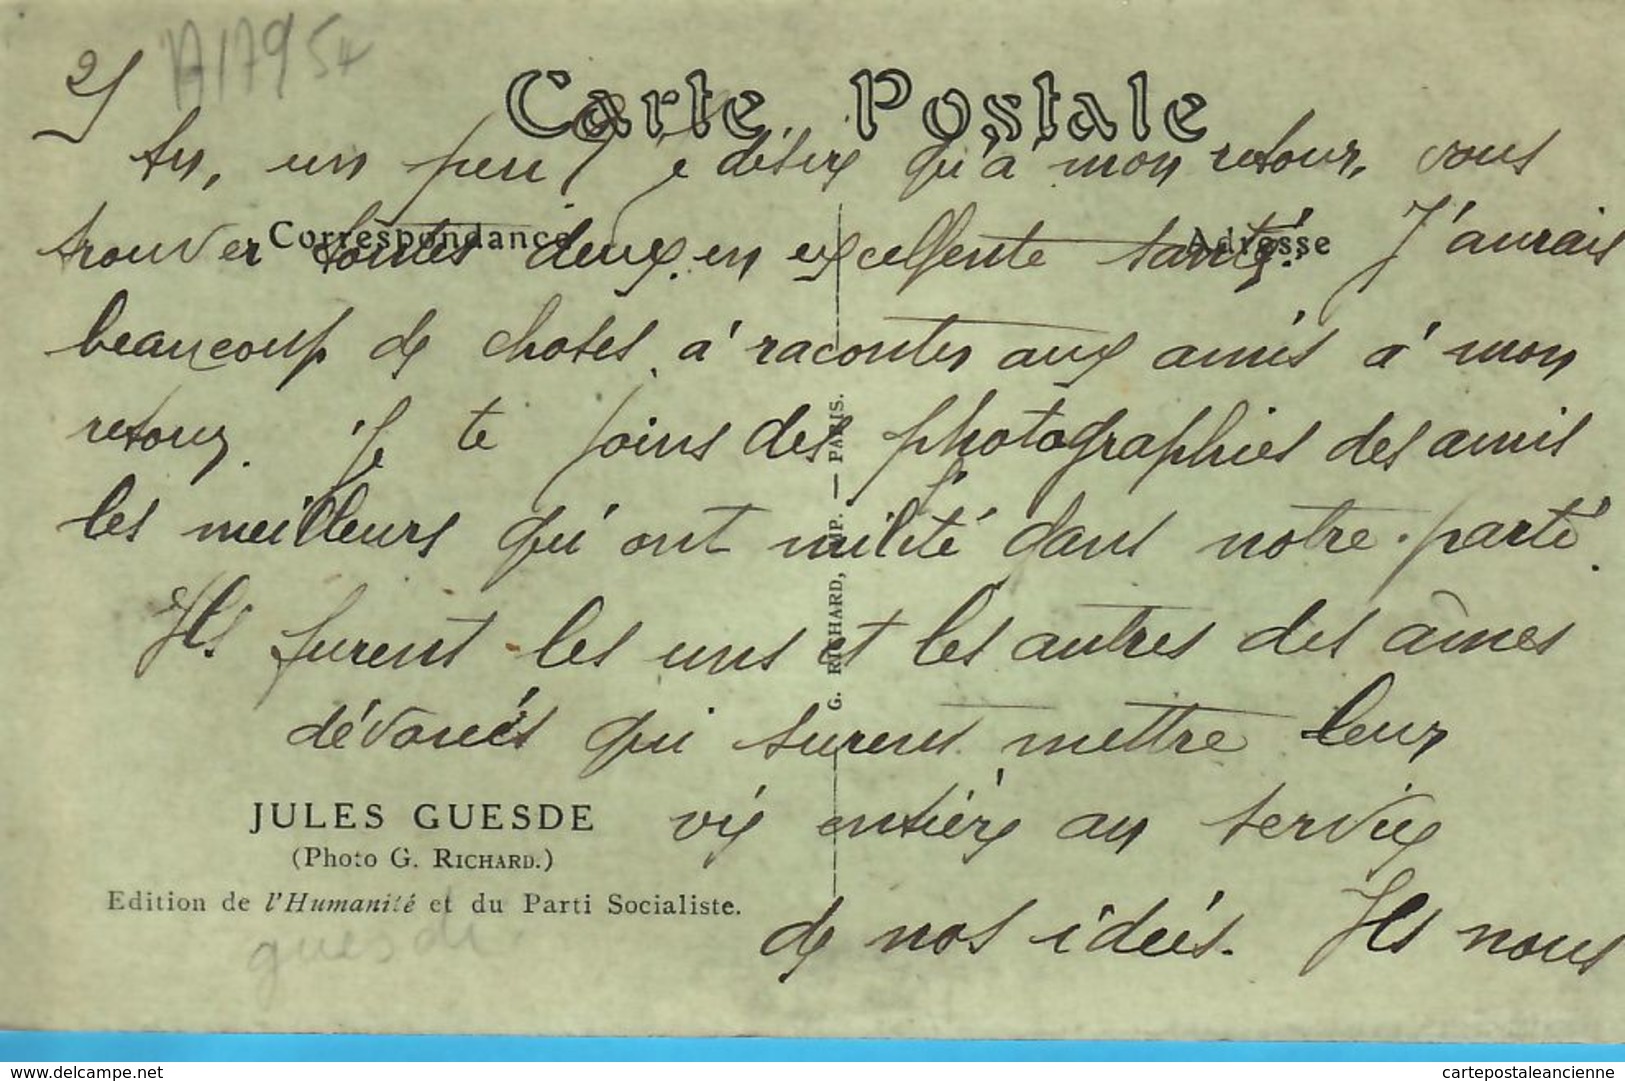 2)
A1795
Carte Postale
tu, un peu? Je désire qu'à mon retour, vous
Correspondance
Adresse
trouver toutes deux en excellente santé. J'aurais
beaucoup de choses à raconter aux amis à mon
retour. Je te joins des photographies des amis
les meilleurs qui ont milité dans notre parti.
Ils furent les uns et les autres des âmes
dévouées qui surent mettre leur
JULES GUESDE
vie entière au service
(Photo G. RICHARD.)
Edition de l'Humanité et du Parti Socialiste.
de nos idées. Ils nous
guesde
G. RICHARD, IMP. — PARIS.
www.delcampe.net
cartepostaleancienne